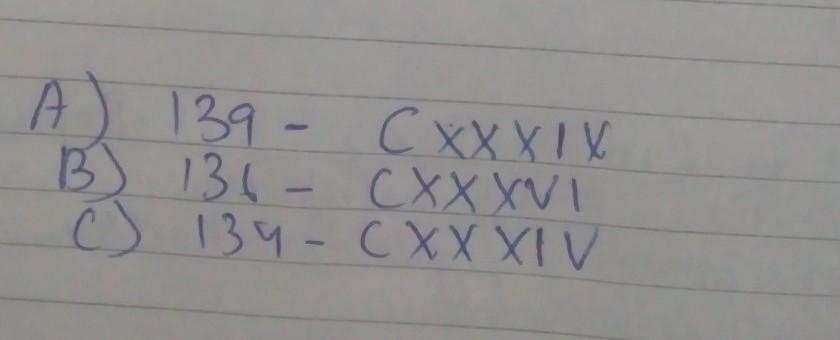 A) 139 - CXXXIX
B) 136 - CXXXVI
C) 134 - CXXXIV